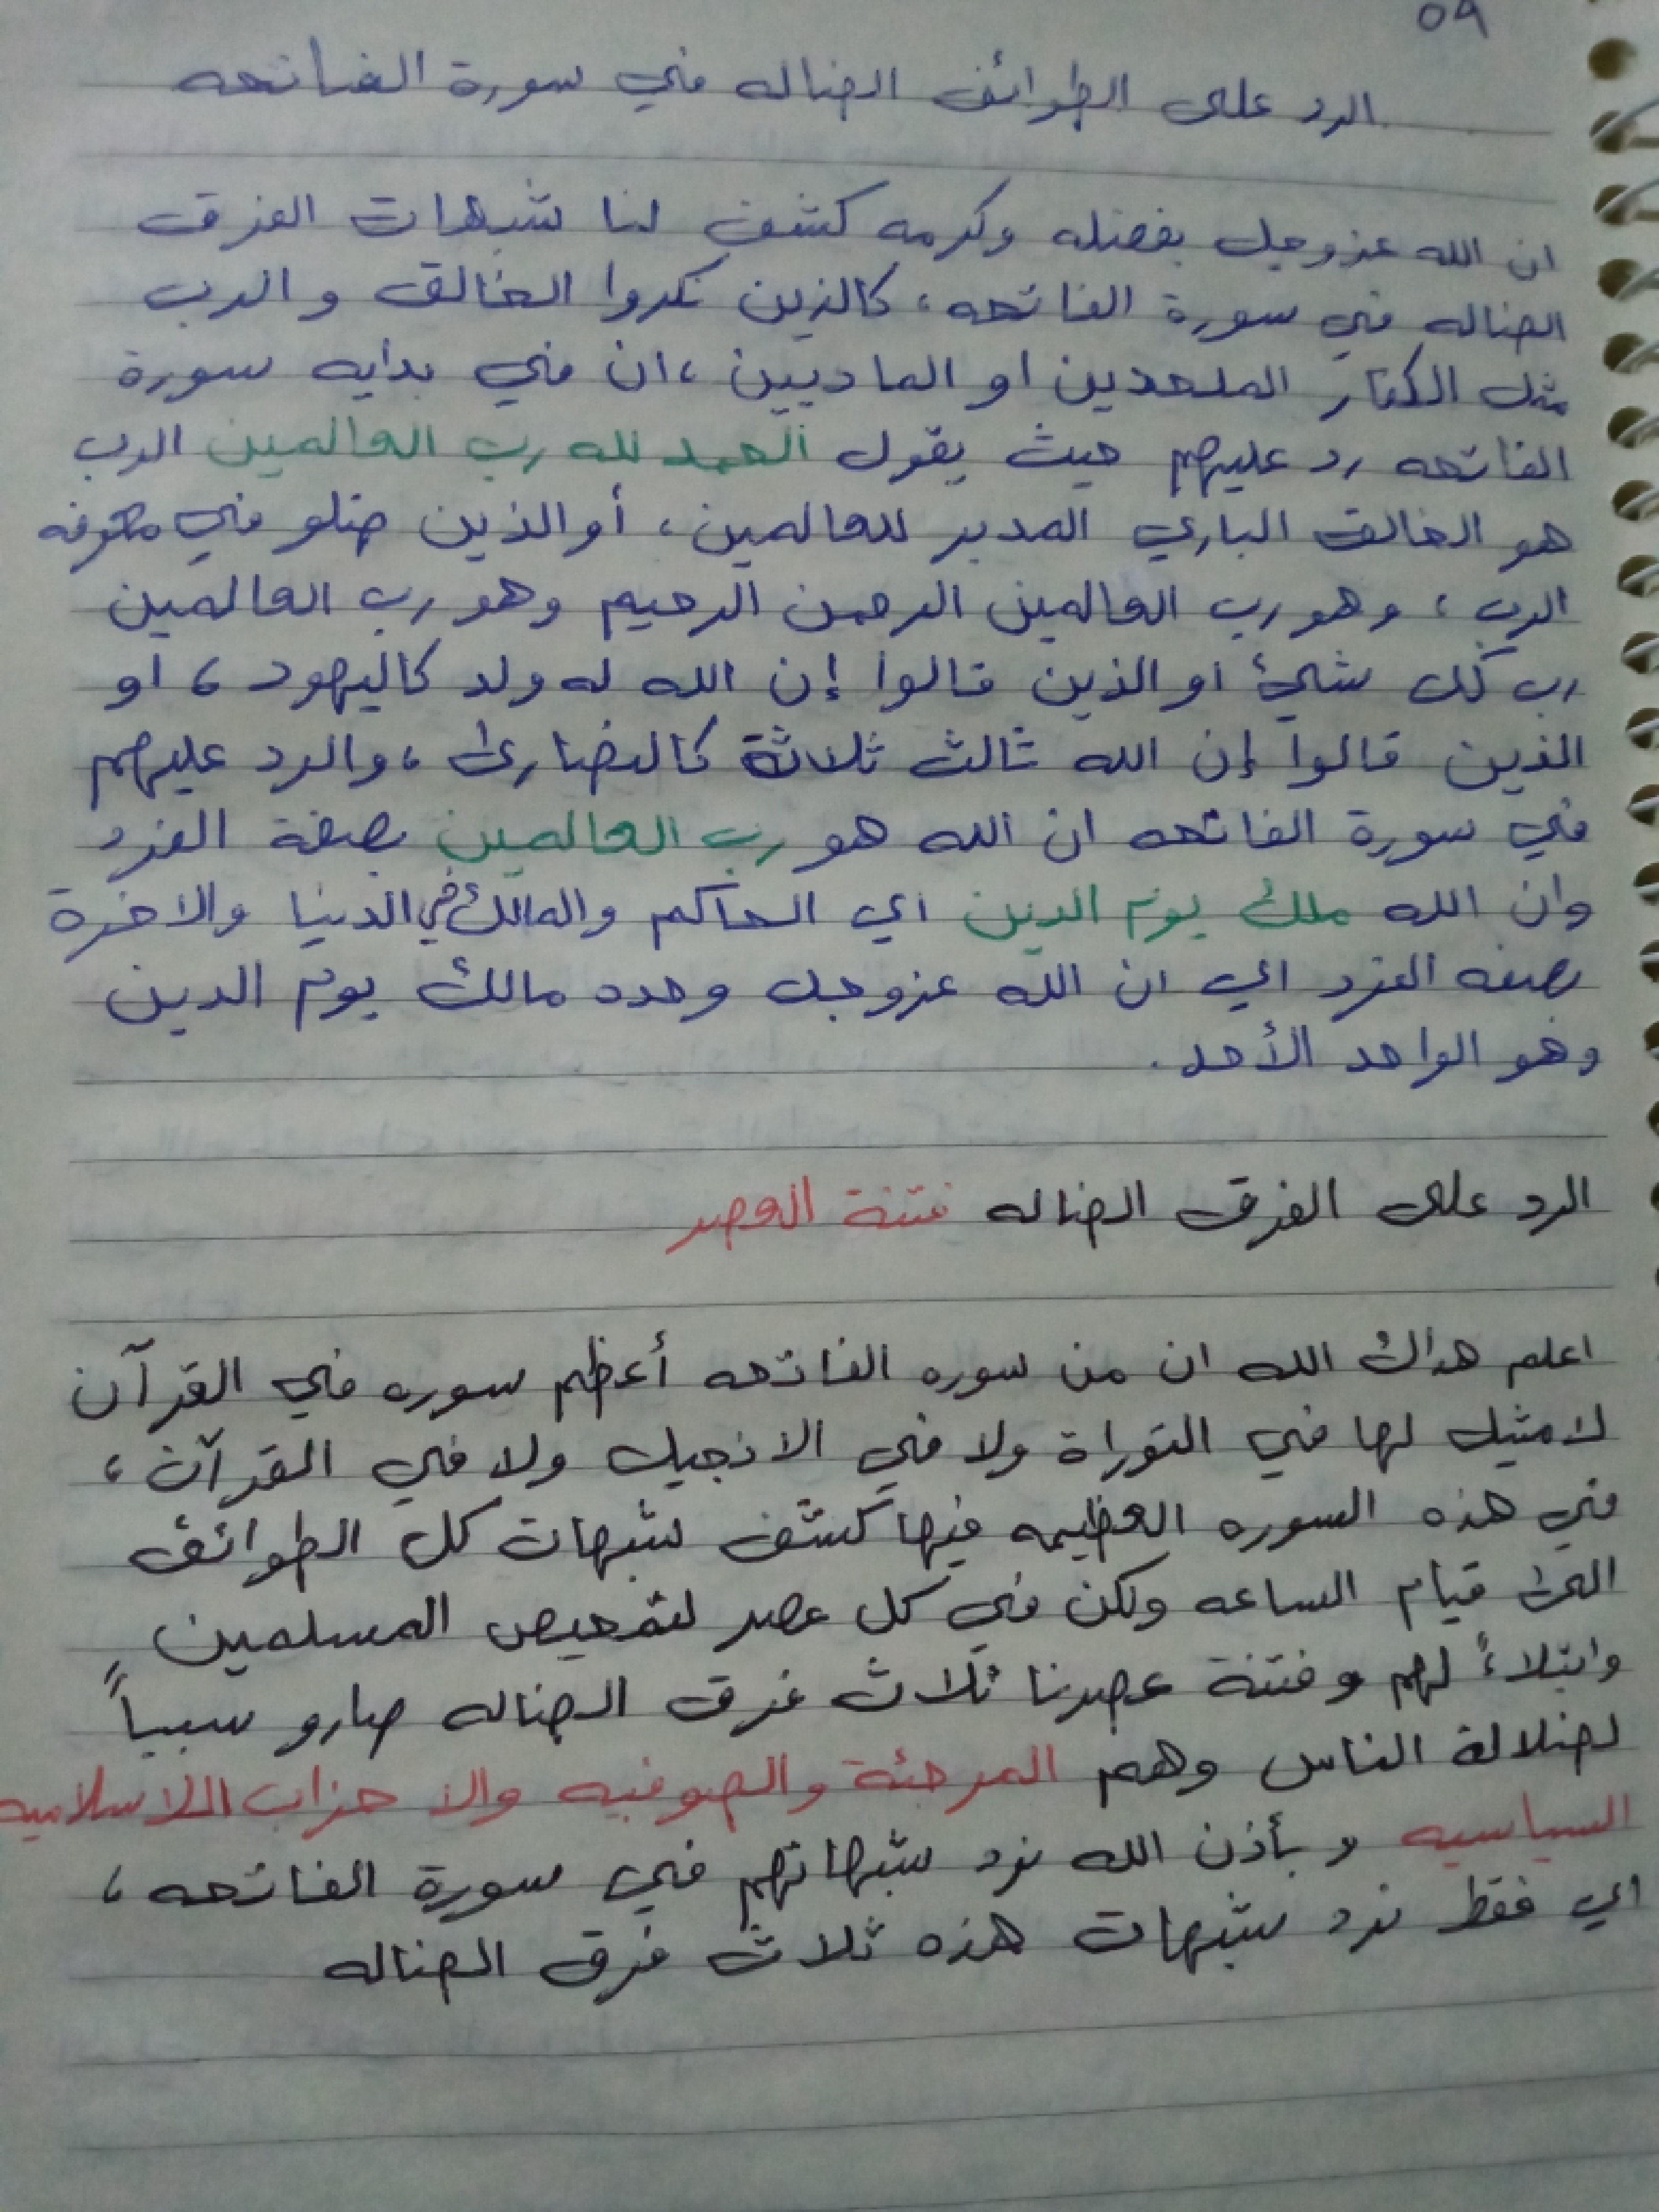 ٥٩
الرد على الطوائف الضاله في سورة الفاتحه
ان الله عزوجل بفضله وكرمه كشف لنا شبهات الفرق
الضاله في سورة الفاتحه، كالذين نكروا الخالق والرب
مثل الكفار الملحدين او الماديين، ان في بدايه سورة
الفاتحه رد عليهم حيث يقول الحمد لله رب العالمين الرب
هو الخالق الباري المدبر للعالمين، أو الذين ضلو في معرفه
الرب، وهو رب العالمين الرحمن الرحيم وهو رب العالمين
رب كل شيئ او الذين قالوا إن الله له ولد كاليهود، او
الذين قالوا إن الله ثالث ثلاثة كالنصارى، والرد عليهم
في سورة الفاتحه ان الله هو رب العالمين بصفة الفرد
وان الله ملك يوم الدين اي الحاكم والمالك في الدنيا والاخرة
بصفه الفرد اي ان الله عزوجل وحده مالك يوم الدين
وهو الواحد الأحد.
الرد على الفرق الضاله فتنة العصر
اعلم هداك الله ان من سوره الفاتحه أعظم سوره في القرآن
لا مثيل لها في التوراة ولا في الانجيل ولا في القرآن،
في هذه السوره العظيمه فيها كشف شبهات كل الطوائف
الى قيام الساعه ولكن في كل عصر لتمحيص المسلمين
وابتلاءً لهم وفتنة عصرنا ثلاث فرق الضاله صارو سبباً
لضلالة الناس وهم المرجئة والصوفيه والاحزاب الاسلاميه
السياسيه وبأذن الله نرد شبهاتهم في سورة الفاتحه،
اي فقط نرد شبهات هذه ثلاث فرق الضاله